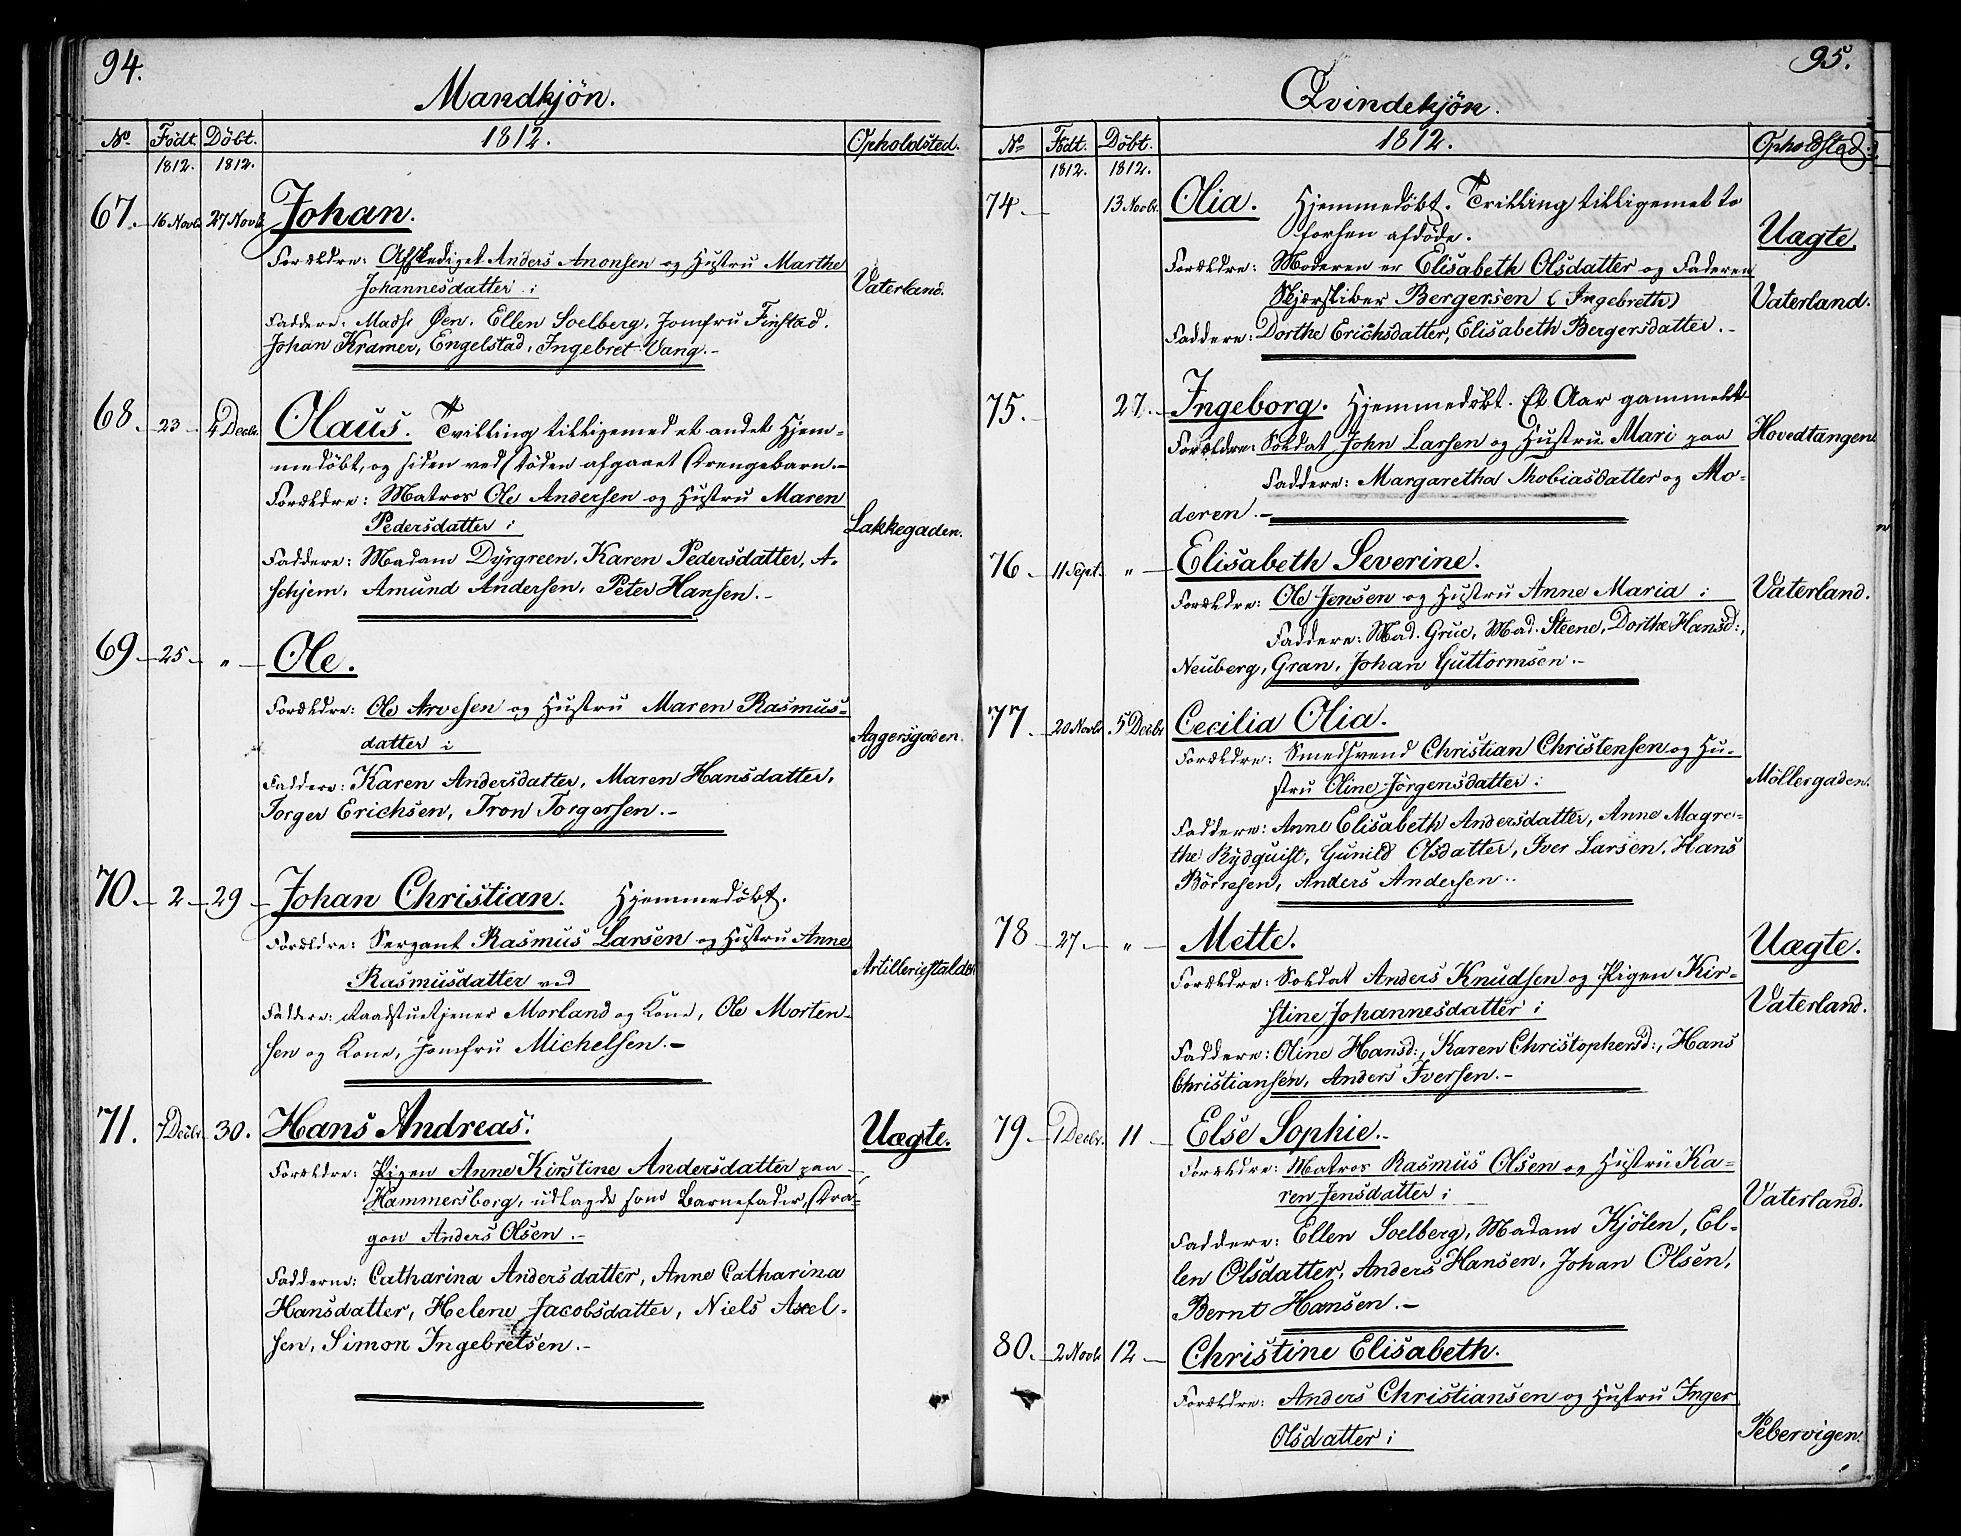 94.
Mandkjön.
No. Födt. Döbt. 1812. Opholdsted.
1812. 1812.
67. 16 Novb. 27 Novb. Johan.
Forældre: Afskediget Anders Anonsen og Hustru Marthe
Johannesdatter i Vaterland.
Faddere: Mads Øen, Ellen Soelberg, Jomfru Finstad.
Johan Kramer, Engelstad, Ingebret Vang.-
68. 23 4 Decbr. Olaus. Tvilling tilligemed et andet Hjem-
medöbt, og siden ved Döden afgaaet Drengebarn.-
Forældre: Matros Ole Andersen og Hustru Maren
Pedersdatter i Lakkegaden.
Faddere: Madam Dyrgreen, Karen Pedersdatter, A-
schjem, Amund Andersen, Peter Hansen.-
69 25 " Ole.
Forældre: Ole Arvesen og Hustru Maren Rasmus-
datter i Aggersgaden.
Faddere: Karen Andersdatter, Maren Hansdatter,
Torger Erichsen, Tron Torgersen.-
70. 2 29 Johan Christian. Hjemmedöbt.
Forældre: Sergant Rasmus Larsen og Hustru Anne
Rasmusdatter ved Artilleriestalden
Faddere: Raadstuetjener Morland og Kone, Ole Morten-
sen og Kone, Jomfru Michelsen.-
71. 7 Decbr. 30. Hans Andreas. Uægte.
Forældre: Pigen Anne Kirstine Andersdatter paa
Hammersborg, udlagde som Barnefader, Dra-
gon Anders Olsen.-
Fadderne: Catharina Andersdatter, Anne Catharina
Hansdatter, Helene Jacobsdatter, Niels Axel-
sen, Simon Ingebretsen.-
95.
Qvindekjön.
No Födt. Döbt. 1812. Opholdsted.
1812. 1812.
74 13 Novbr. Olia. Hjemmedöbt. Trilling tilligemet to
forhen afdöde. Uægte.
Forældre: Moderen er Elisabeth Olsdatter og Faderen
Skjærsliber Bergersen (Ingebreth) Vaterland.
Faddere: Dorthe Erichsdatter, Elisabeth Bergersdatter.-
75. 27. Ingeborg. Hjemmedöbt. Et Aar gammelt
Forældre: Soldat John Larsen og Hustru Mari paa Hovedtangen.
Faddere: Margaretha Thobiasdatter og Mo-
deren.-
76 11 Sept. " Elisabeth Severine.
Forældre: Ole Jensen og Hustru Anne Maria i Vaterland.
Faddere: Mad. Grue, Mad. Steene, Dorthe Hansd:,
Neuberg, Gran, Johan Guttormsen.-
77. 20 Novbr 5 Decbr Cecilia Olia.
Forældre: Smedsvend Christian Christensen og Hu-
stru Oline Jörgensdatter i Möllergaden.
Faddere: Anne Elisabeth Andersdatter, Anne Magre-
the Rydquist, Gunild Olsdatter, Iver Larsen, Hans
Börresen, Anders Andersen.
78 27. " Mette. Uægte.
Forældre: Soldat Anders Knudsen og Pigen Kir-
stine Johannesdatter i Vaterland.
Faddere: Oline Hansd:, Karen Christophersd:, Hans
Christiansen, Anders Iversen.-
79 1 Decbr. 11 Else Sophie.
Forældre: Matros Rasmus Olsen og Hustru Ka-
ren Jensdatter i Vaterland.
Faddere: Ellen Soelberg, Madam Kjölen, El-
len Olsdatter, Anders Hansen, Johan Olsen,
Bernt Hansen.-
80. 2 Novbr 12 Christine Elisabeth.
Forældre: Anders Christiansen og Hustru Inger
Olsdatter i Pebervigen.